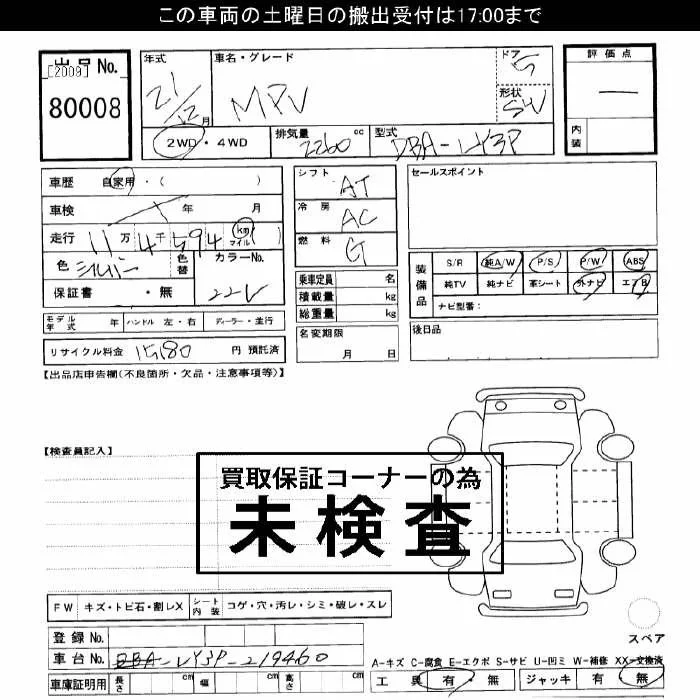 この車両の土曜日の搬出受付は17:00まで
出品 No.
[2009]
80008
年式
21/12 月
車名・グレード
MPV
ドア
5
形状
SW
評価点
—
内装
2WD・4WD
排気量 2260 cc
型式 DBA-LY3P
車歴 自家用・( )
車検 年 月
走行 11万4千594 km マイル
色 シルバー 色替 カラーNo.
22V
保証書 ・ 無
シフト AT
冷房 AC
燃料 G
乗車定員 名
積載量 kg
総重量 kg
名変期限
月 日
セールスポイント
装備品
S/R 純A/W P/S P/W ABS
純TV 純ナビ 革シート 外ナビ エアB
ナビ型番:
後日品
モデル年式 年 ハンドル 左・右 ディーラー・並行
リサイクル料金 15180 円 預託済
【出品店申告欄(不良箇所・欠品・注意事項等)】
【検査員記入】
買取保証コーナーの為
未検査
FW キズ・トビ石・割レX シート内装 コゲ・穴・汚レ・シミ・破レ・スレ
スペア
登録 No.
車台 No. DBA-LY3P-219460
車庫証明用 長さ cm 幅 cm 高さ cm
A-キズ C-腐食 E-エクボ S-サビ U-凹ミ W-補修 XX-交換済
工具 有・無 ジャッキ 有・無